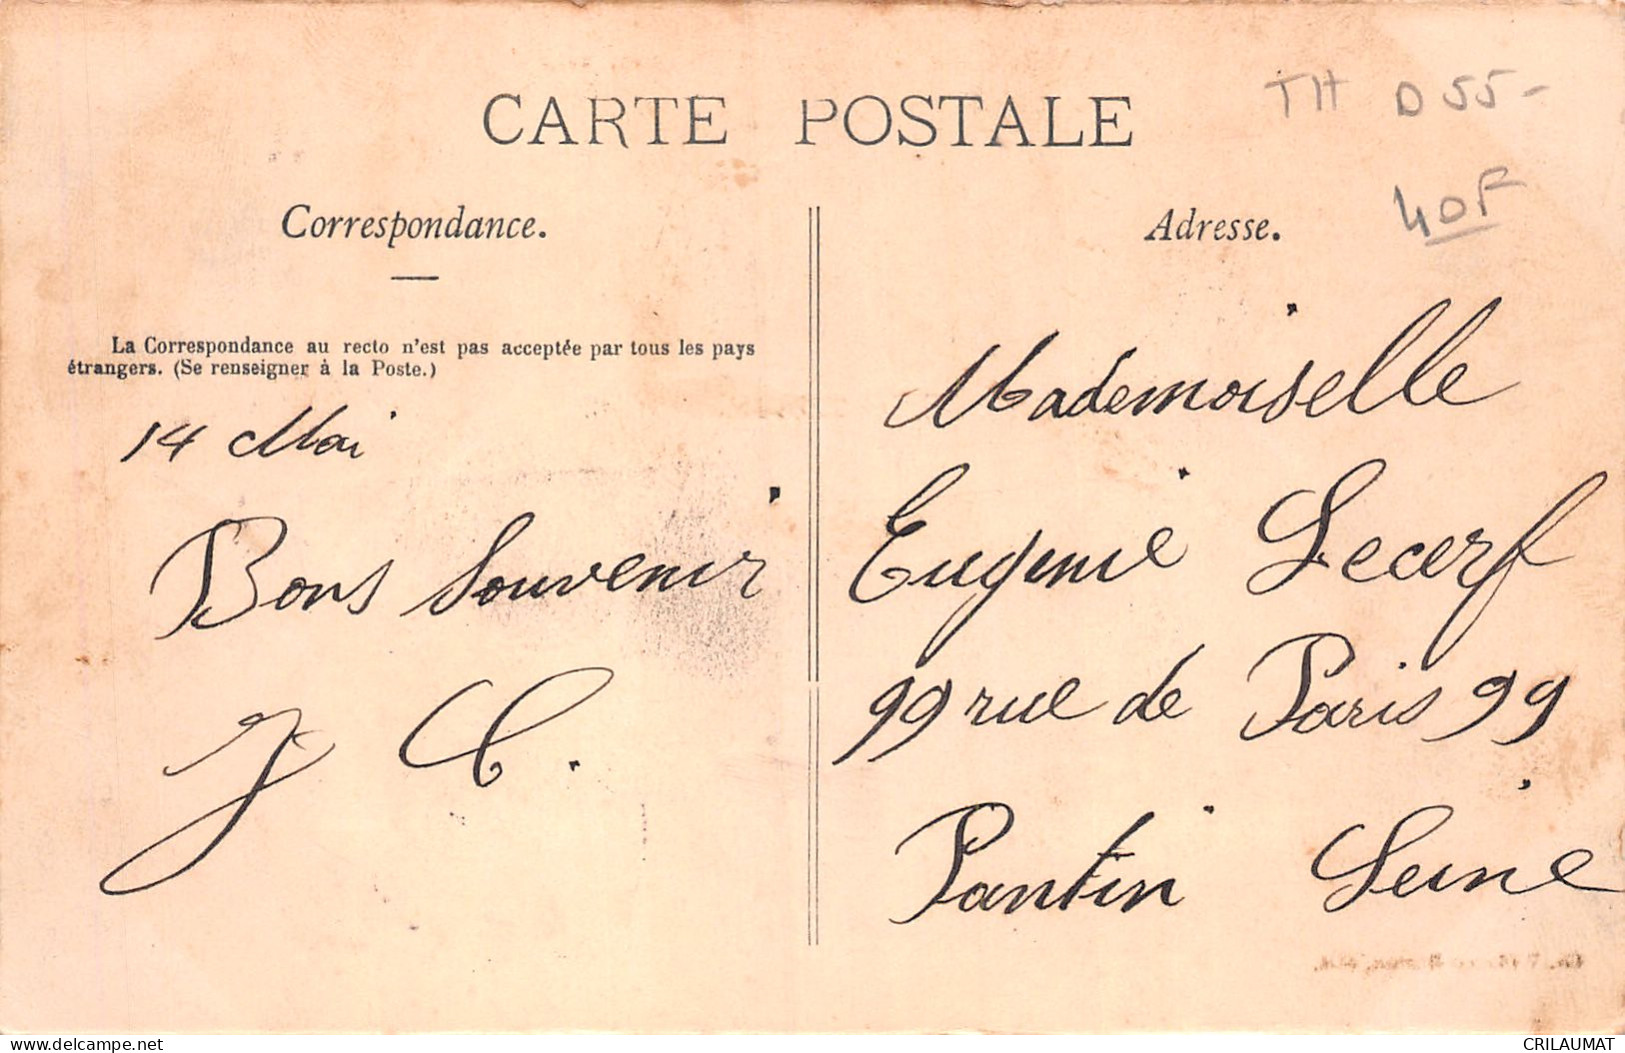 CARTE POSTALE
TH D 55-
40F
Correspondance.
Adresse.
La Correspondance au recto n'est pas acceptée par tous les pays
étrangers. (Se renseigner à la Poste.)
14 Mai
Bons Souvenir
J C.
Mademoiselle
Eugenie Lecerf
99 rue de Paris 99
Pantin Seine
delcampe.net
CRILAUMAT